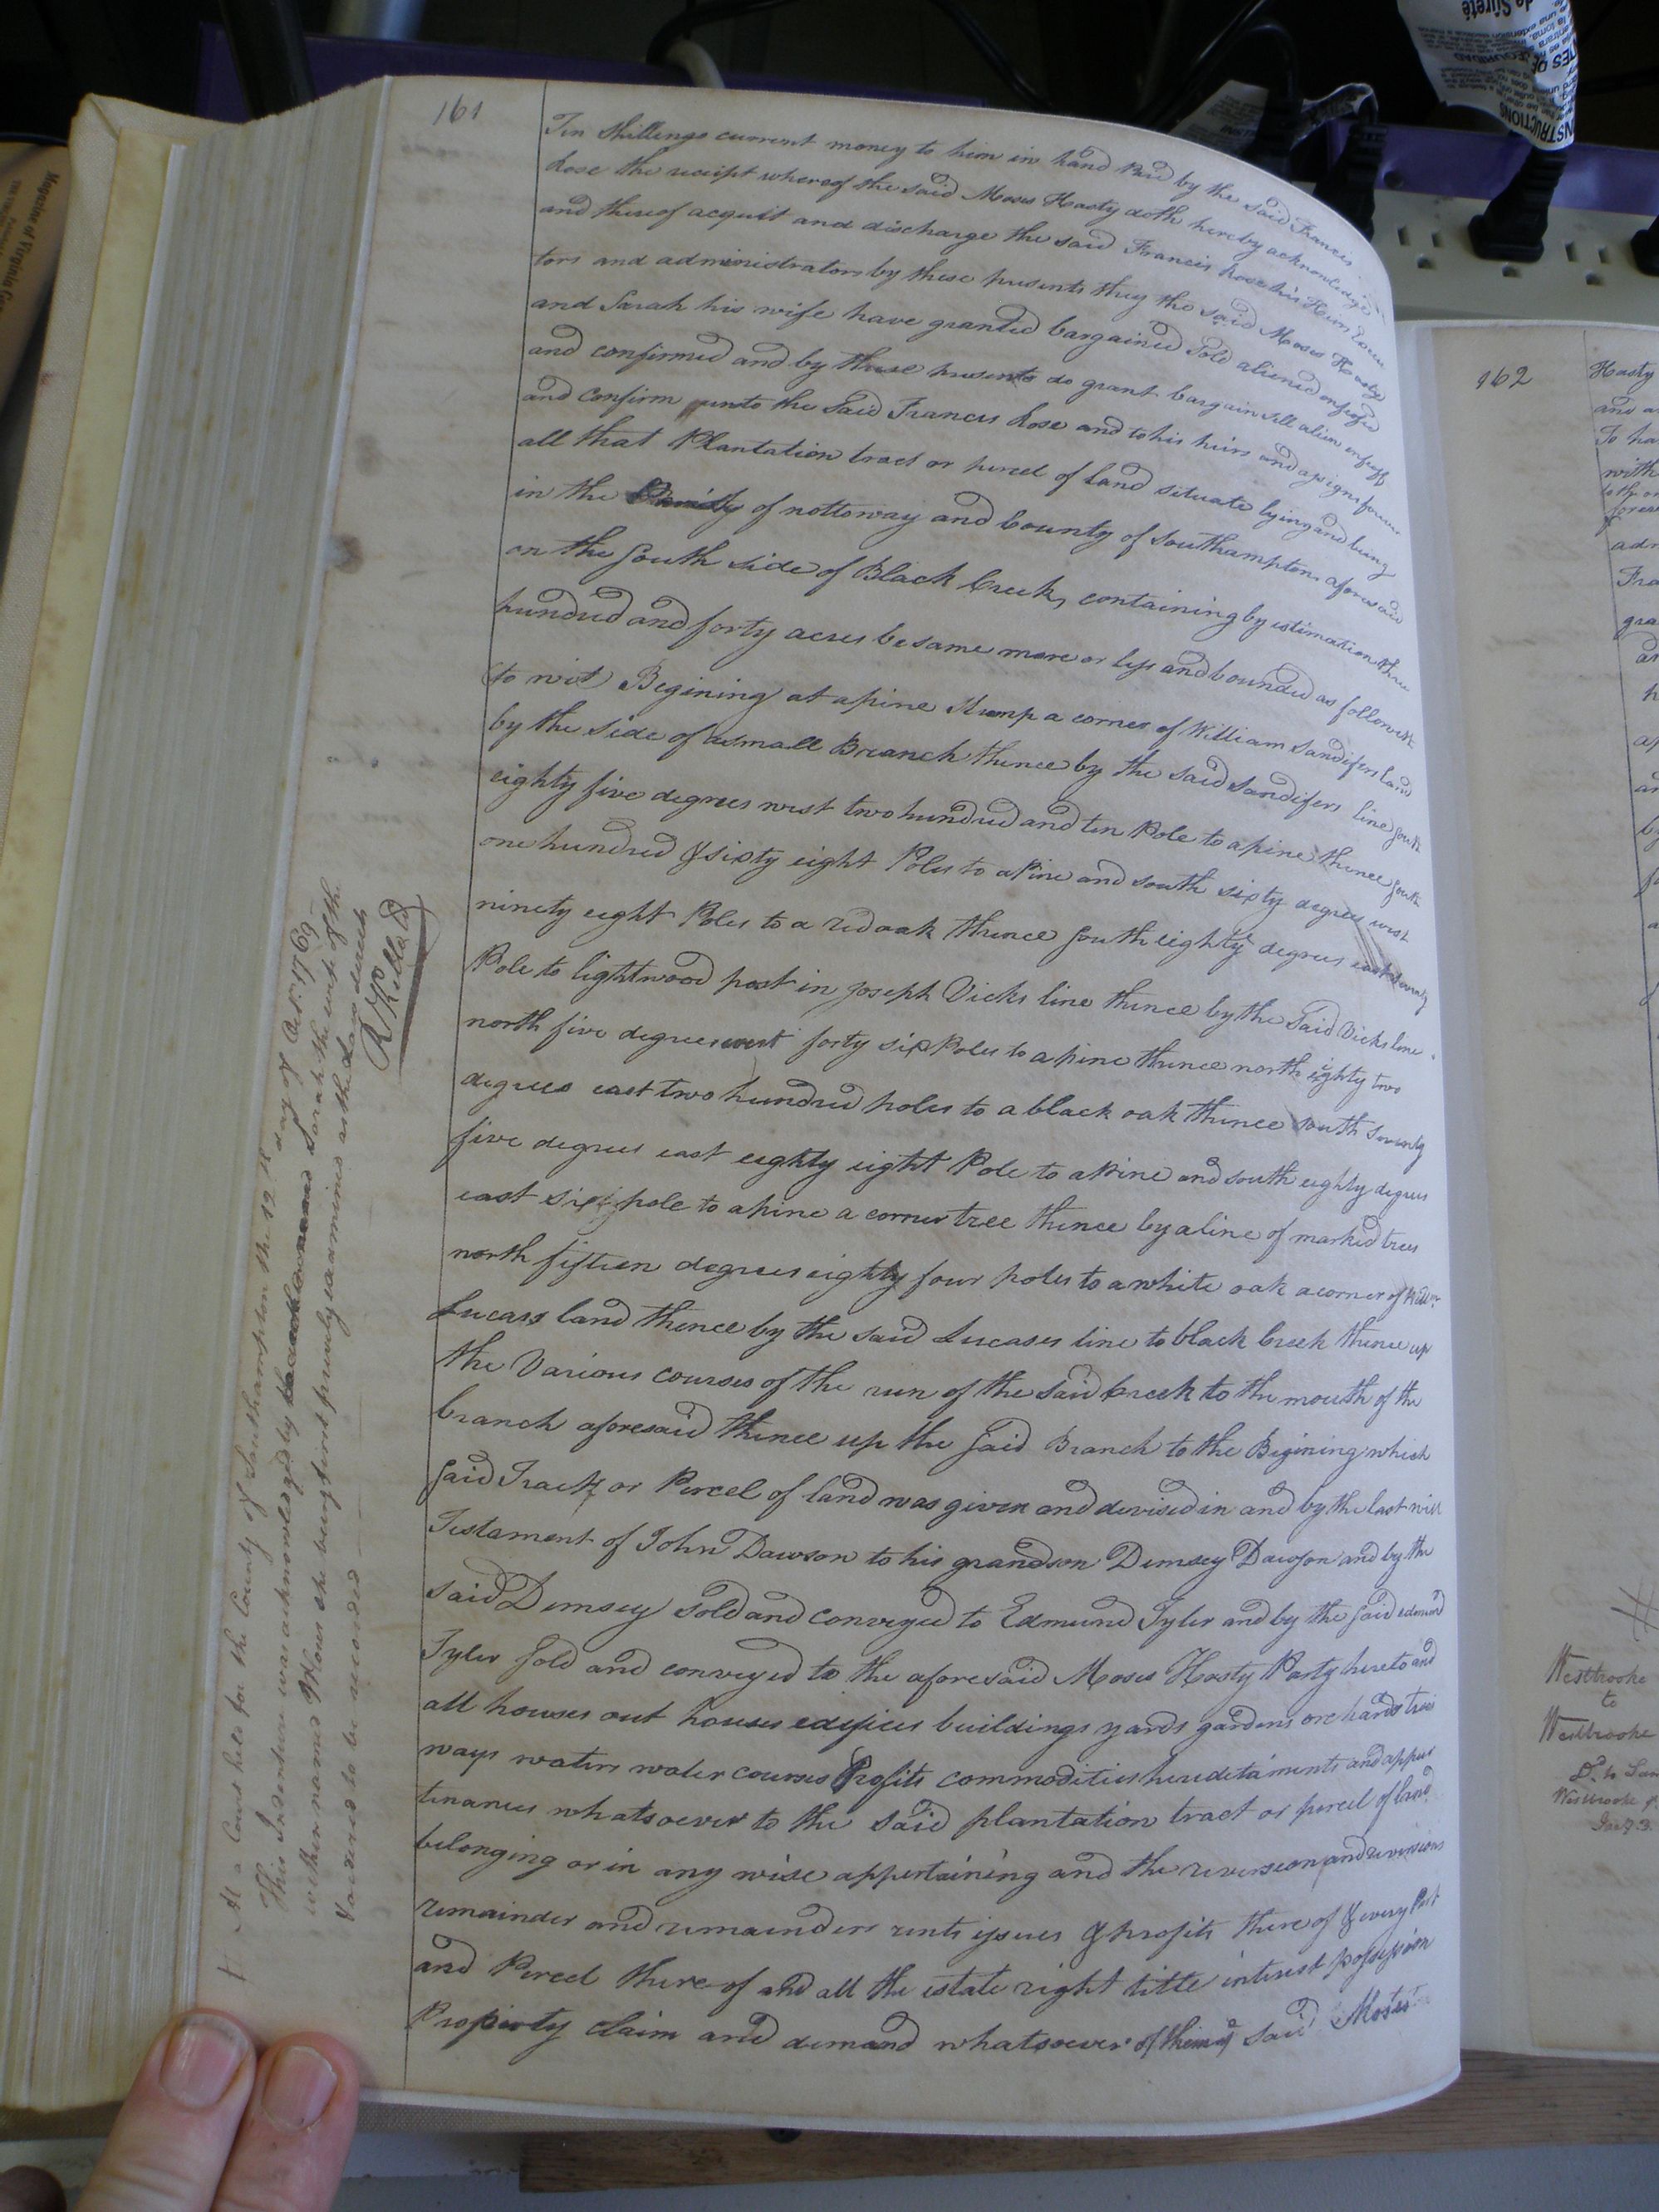 161
Ten Shillings current money to him in hand Paid by the said Francis
Rose the receipt whereof the said Moses Hasty doth hereby acknowledge
and thereof acquitt and discharge the said Francis Rose his Heirs Execu
tors and administrators by these presents they the said Moses Hasty
and Sarah his wife have granted bargained Sold aliened enfeofed
and confirmed and by these presents do grant bargain sell alien enfeoff
and Confirm unto the Said Francis Rose and to his heirs and assigns forever
all that Plantation tract or percel of Land situate lying and being
in the Parish of nottoway and County of Southampton aforesaid
on the South side of Black Creek, containing by estimation three
hundred and forty acres be same more or less and bounded as followeth
(to wit) Begining at a pine Stump a corner of William Sandifers land
by the side of a small Branch thence by the said Sandifers line South
eighty five degrees west two hundred and ten Pole to a pine thence South
one hundred & sixty eight Poles to a Pine and south sixty degrees west
ninety eight Poles to a red oak thence South eighty degrees east seventy
Pole to lightwood post in Joseph Vicks line thence by the Said Vicks line
north five degrees west forty six Poles to a pine thence north eighty two
degrees east two hundred poles to a black oak thence South seventy
five degrees east eighty eight Pole to a Pine and south eighty degrees
east sixty pole to a pine a corner tree thence by a line of marked trees
north fifteen degrees eighty four poles to a white oak a corner of Will.m
Lucass land thence by the said Lucases line to black Creek thence up
the Various courses of the run of the Said Creek to the mouth of the
branch aforesaid thence up the Said Branch to the Begining which
Said Track or Percel of land was given and devised in and by the last will
Testament of John Dawson to his grandson Demsey Dawson and by the
said Demsey Sold and conveyed to Edmund Tyler and by the Said edmund
Tyler Sold and conveyed to the aforesaid Moses Hasty Party hereto and
all houses out houses edifices buildings yards gardens orchards trees
ways waters water courses Profits commodities hereditaments and appur
tinances whatsoever to the said plantation tract or parcel of land
belonging or in any wise appertaining and the reverseon and reversions
remainder and remainders rents issues & profits there of & every Part
and Percel there of and all the estate right title interest possession
Property claim and demand whatsoever of them said Moses
At a Court held for the County of Southampton the 12th day of Oct.r 1769
This Indenture was acknowledged by Sarah the wife of the
within named Moses she being first privily examined as the law directs
& ordered to be recorded
R Kello CC
162
Hasty
To ha
with
Fra
gra
Westbrooke
to
Westbrooke